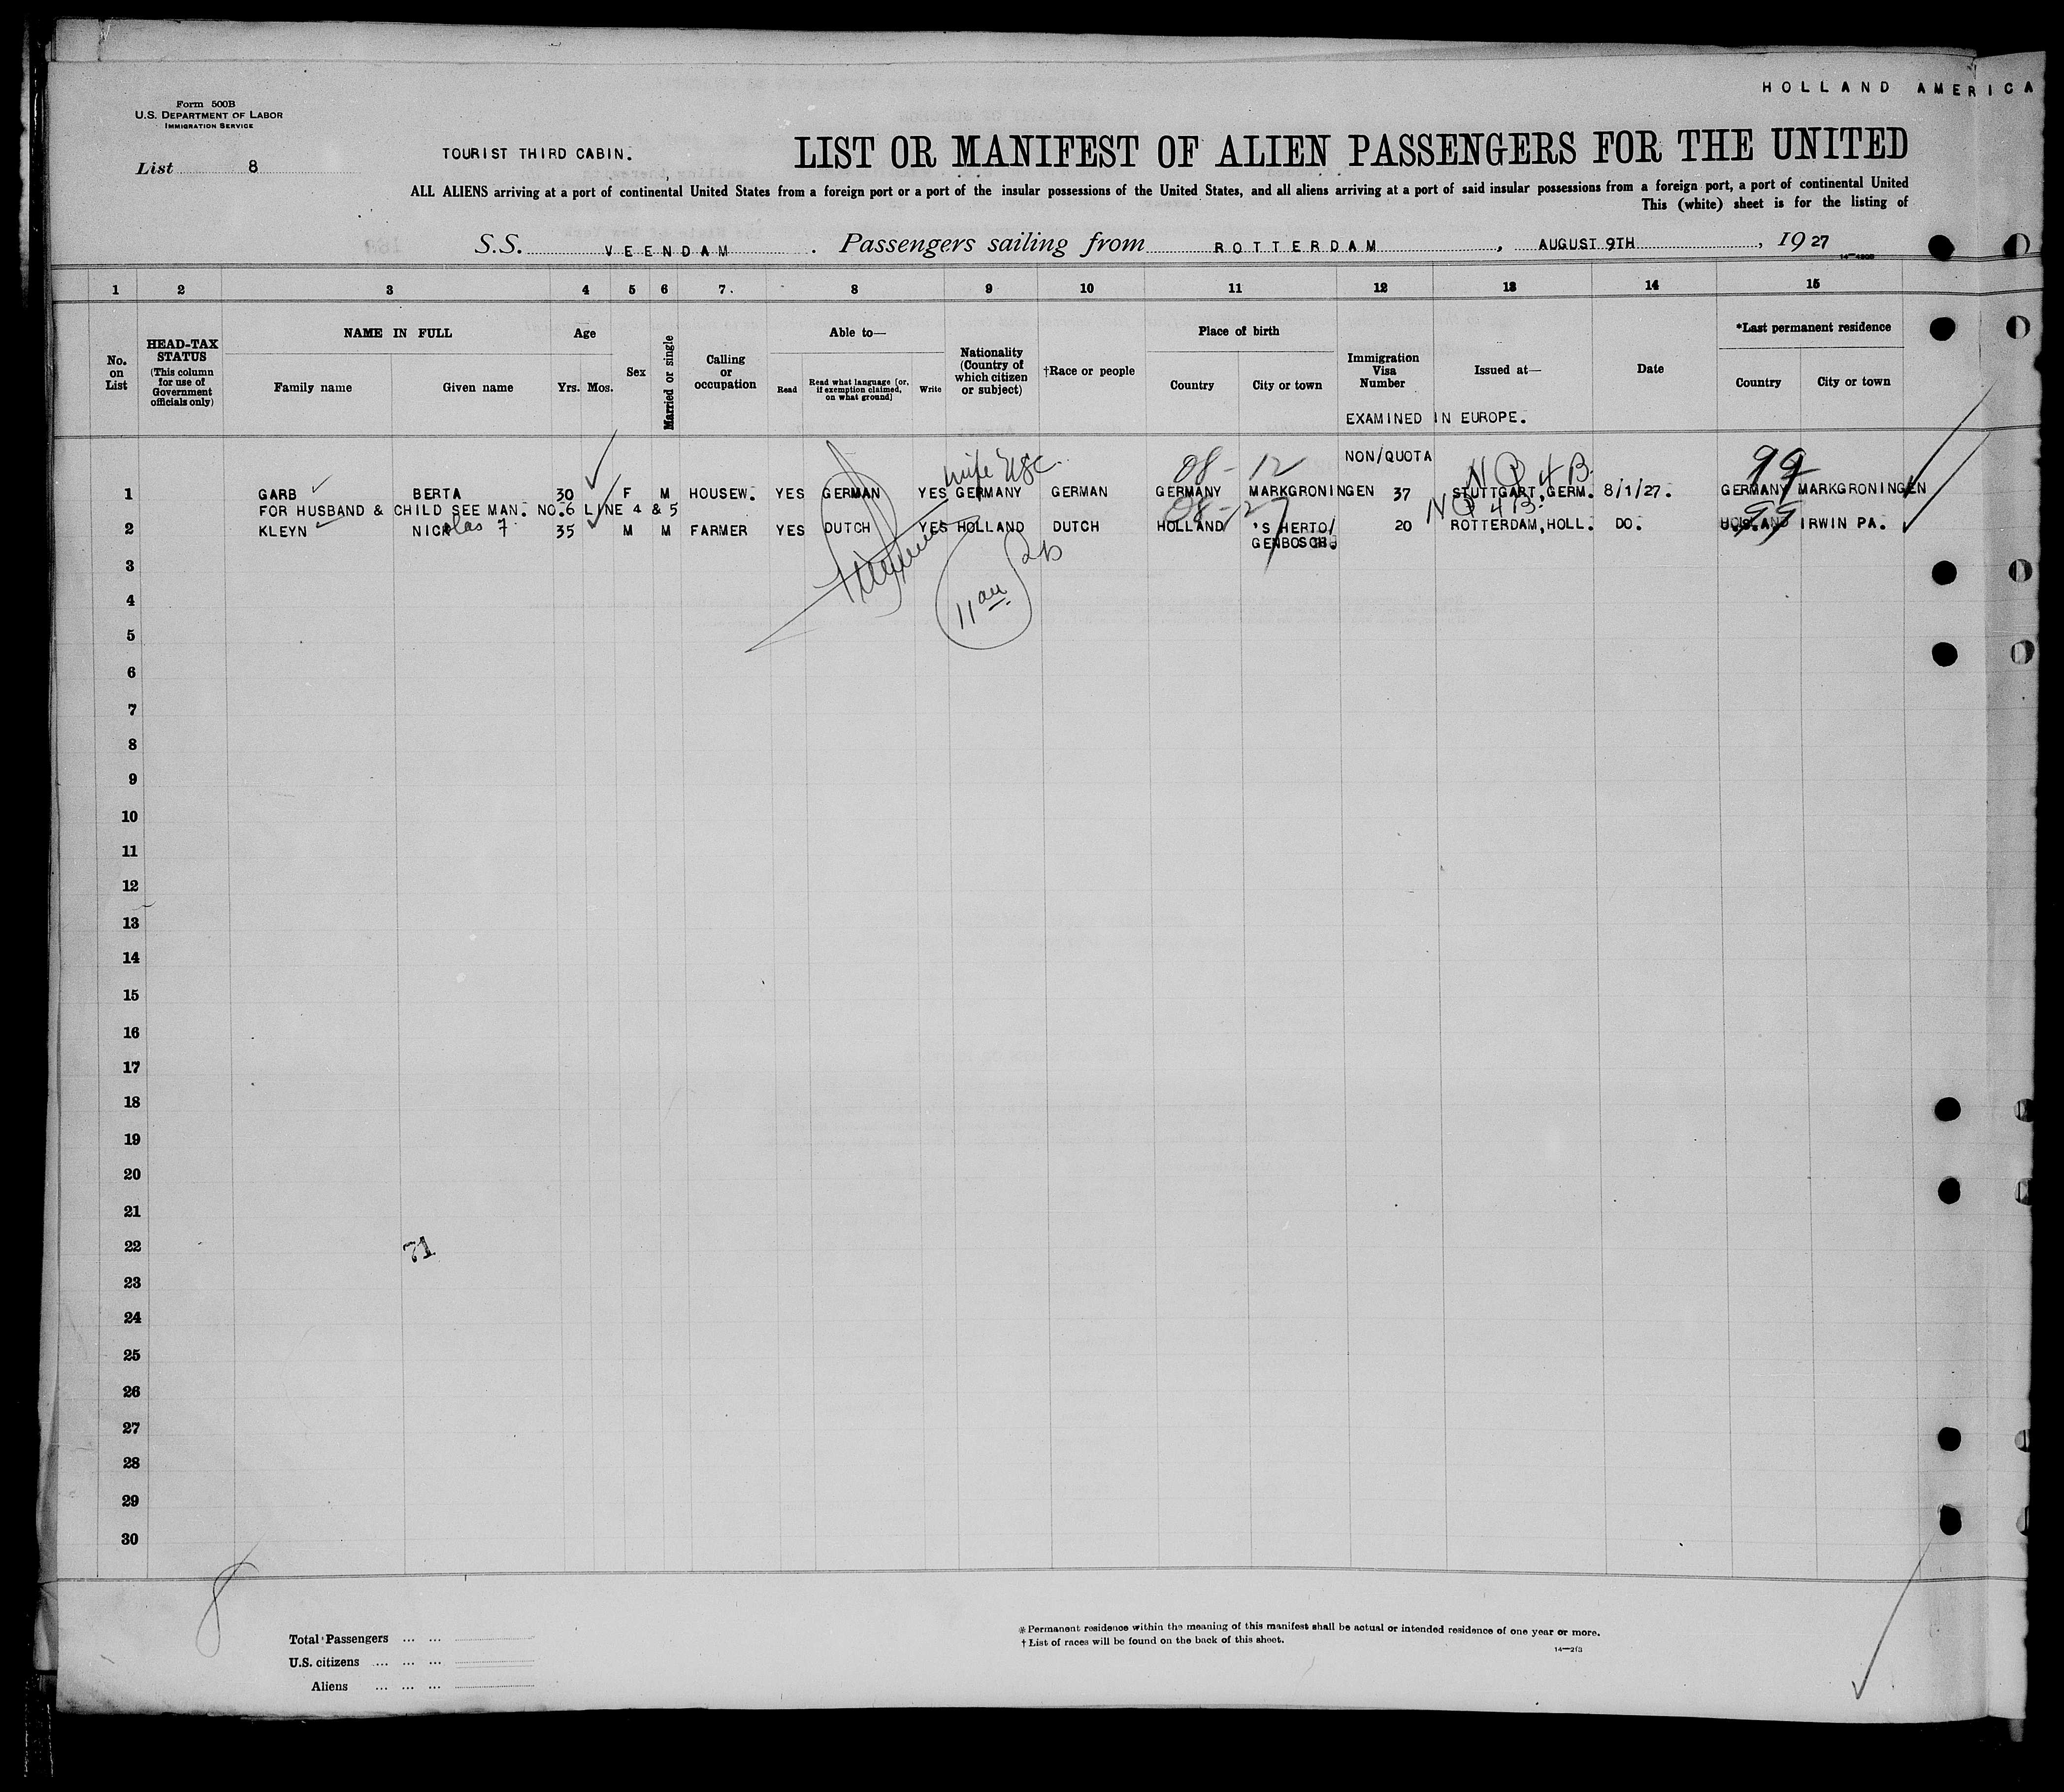 HOLLAND AMERICA
Form 500B
U.S. DEPARTMENT OF LABOR
IMMIGRATION SERVICE
List 8
TOURIST THIRD CABIN.
LIST OR MANIFEST OF ALIEN PASSENGERS FOR THE UNITED
ALL ALIENS arriving at a port of continental United States from a foreign port or a port of the insular possessions of the United States, and all aliens arriving at a port of said insular possessions from a foreign port, a port of continental United
This (white) sheet is for the listing of
S.S. VEENDAM . Passengers sailing from ROTTERDAM , AUGUST 9TH , 1927
1 2 3 4 5 6 7. 8 9 10 11 12 13 14 15
No. on List
HEAD-TAX STATUS (This column for use of Government officials only)
NAME IN FULL
Family name Given name
Age
Yrs. Mos.
Sex
Married or single
Calling or occupation
Able to—
Read Read what language [or, if exemption claimed, on what ground] Write
Nationality (Country of which citizen or subject)
†Race or people
Place of birth
Country City or town
Immigration Visa Number
Issued at—
Date
*Last permanent residence
Country City or town
EXAMINED IN EUROPE.
wife USC. 08-12 NON/QUOTA NQ 4 B. 99
1 GARB BERTA 30 F M HOUSEW. YES GERMAN YES GERMANY GERMAN GERMANY MARKGRONINGEN 37 STUTTGART,GERM. 8/1/27. GERMANY MARKGRONINGEN
FOR HUSBAND & CHILD SEE MAN. NO.6 LINE 4 & 5 08-27 NQ 4 B. 99
2 KLEYN NICKolas 35 M M FARMER YES DUTCH YES HOLLAND DUTCH HOLLAND 'S HERTO/ 20 ROTTERDAM,HOLL. DO. HOLLAND IRWIN PA.
GENBOSCH.
3
4
5
6
7
8
9
10
11
12
13
14
15
16
17
18
19
20
21
22 71
23
24
25
26
27
28
29
30
8
Total Passengers ... ...
U.S. citizens ... ... ...
Aliens ... ... ...
* Permanent residence within the meaning of this manifest shall be actual or intended residence of one year or more.
† List of races will be found on the back of this sheet.
14—213